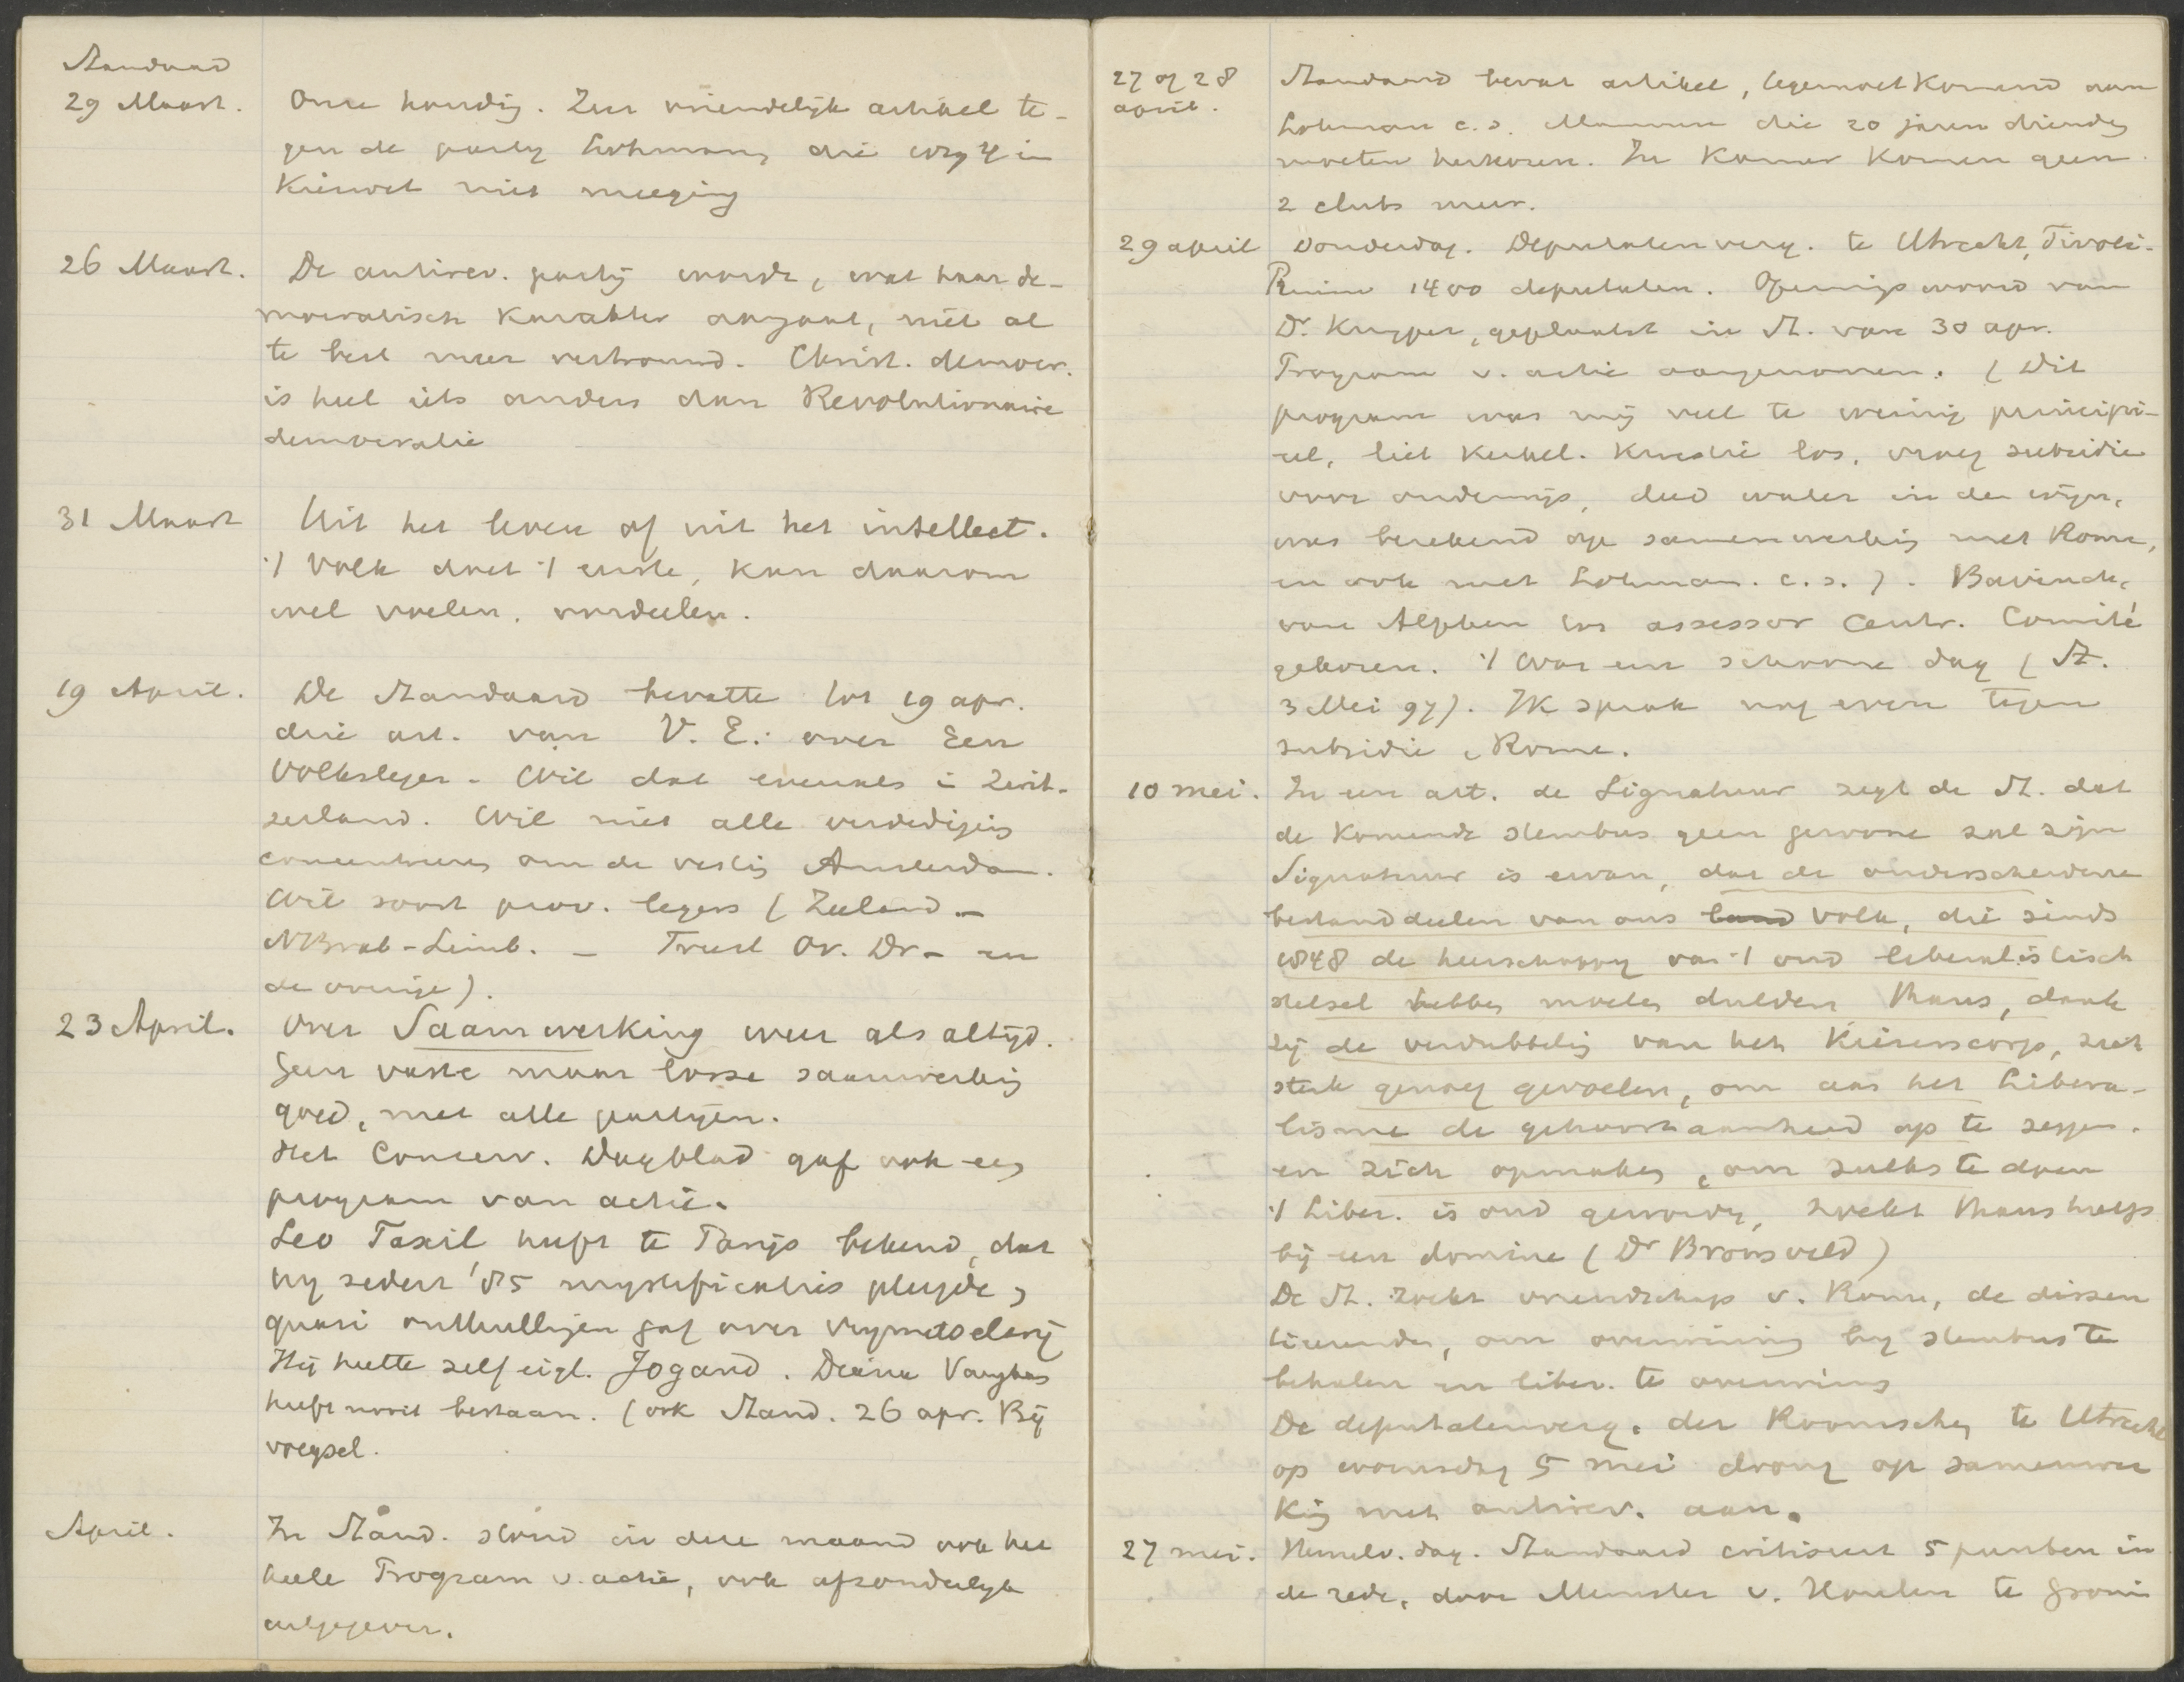 Standaard
29 Maart. Onze houding. Zeer vriendelijk artikel te-
gen de partij Lohmann, die wrsch in
Kieswet niet meeging
26 Maart. De antirev. partij worde, wat haar de-
mocratisch karakter aangaat, niet al
te best meer vertrouwd. Christ. democr.
is heel iets anders dan Revolutionaire
democratie
31 Maart Uit het leven of uit het intellect.
't Volk doet 't eerste, kan daarom
wel voelen, oordeelen.
19 April. De Standaard bevatte tot 19 apr.
drie art. van V. E. over Een
Volksleger. Wil dat evenals i Zwit-
serland. Wil niet alle verdediging
concentreeren om de vestig Amsterdam.
Wil soort prov. legers (Zeeland –
NBrab-Limb. – Frusl Ov. Dr – en
de overige).
23 April. Over Saamwerking weer als altijd.
Geen vaste maar losse saamwerking
goed, met alle partijen.
Het Conserv. Dagblad gaf ook een
program van actie.
Leo Taxil heeft te Parijs bekend, dat
hij sedert '85 mystificaties pleegde,
quasi onthullingen gaf over vrijmetselarij
Hij heette zelf eigl. Jogand. Diana Vaughan
heeft nooit bestaan. (ook Stand. 26 apr. Bij
voegsel.
April. In Stand. stond in deze maand ook het
heele Program v. actie, ook afzonderlijk
uitgegeven.
27 of 28 Standaard bevat artikel, tegemoetkomend aan
april. Lohman c.s. Mannen die 20 jaren dienden
moeten herkozen. In Kamer komen geen
2 clubs meer.
29 april Donderdag. Deputatenverg. te Utrecht, Tivoli.
Ruim 1400 deputaten. Openingswoord van
Dr. Kuyper, geplaatst in St. van 30 apr.
Program v. actie aangenomen. (Dit
program was mij veel te weinig principi-
eel, liet kerkel. kwestie los, vroeg subsidie
voor onderwijs, deed water in den wijn,
was berekend op samenwerking met Rome,
en ook met Lohman. c.s.). Bavinck,
van Alphen tot assessor Centr. Comité
gekozen. 't Was een schoone dag (St.
3 Mei 97). Ik sprak nog even tegen
subsidie, Rome.
10 mei. In een art. de Signatuur zegt de St. dat
de komende stembus geen gewone zal zijn
Signatuur is ervan, dat de onderscheidene
bestanddeelen van ons land volk, die sinds
1848 de heerschappij van 't oud liberalistisch
stelsel hebben moeten dulden thans, dank
zij de verdubbeling van het Kiezerscorps, zich
sterk genoeg gevoelen, om aan het Libera-
lisme de gehoorzaamheid op te zeggen.
en zich opmaken, om zulks te doen
't Liber. is oud geworden, zoekt thans hulp
bij een domine (Dr Bronsveld)
De St. zoekt vriendschap v. Rome, de dissen
tieerenden, om overwinning bij stembus te
behalen en liber. te overwinnen
De deputatenverg. der Roomschen te Utrecht
op woensdag 5 mei drong op samenwer
king met antirev. aan.
27 mei. Hemelv. dag. Standaard critiseert 5 punten in
de rede, door Minister v. Houten te Groni